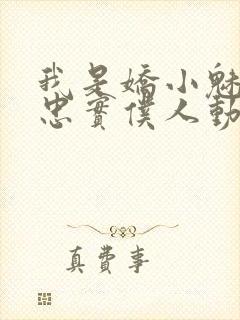 我是嬌小魅
忠實僕人動
真費事